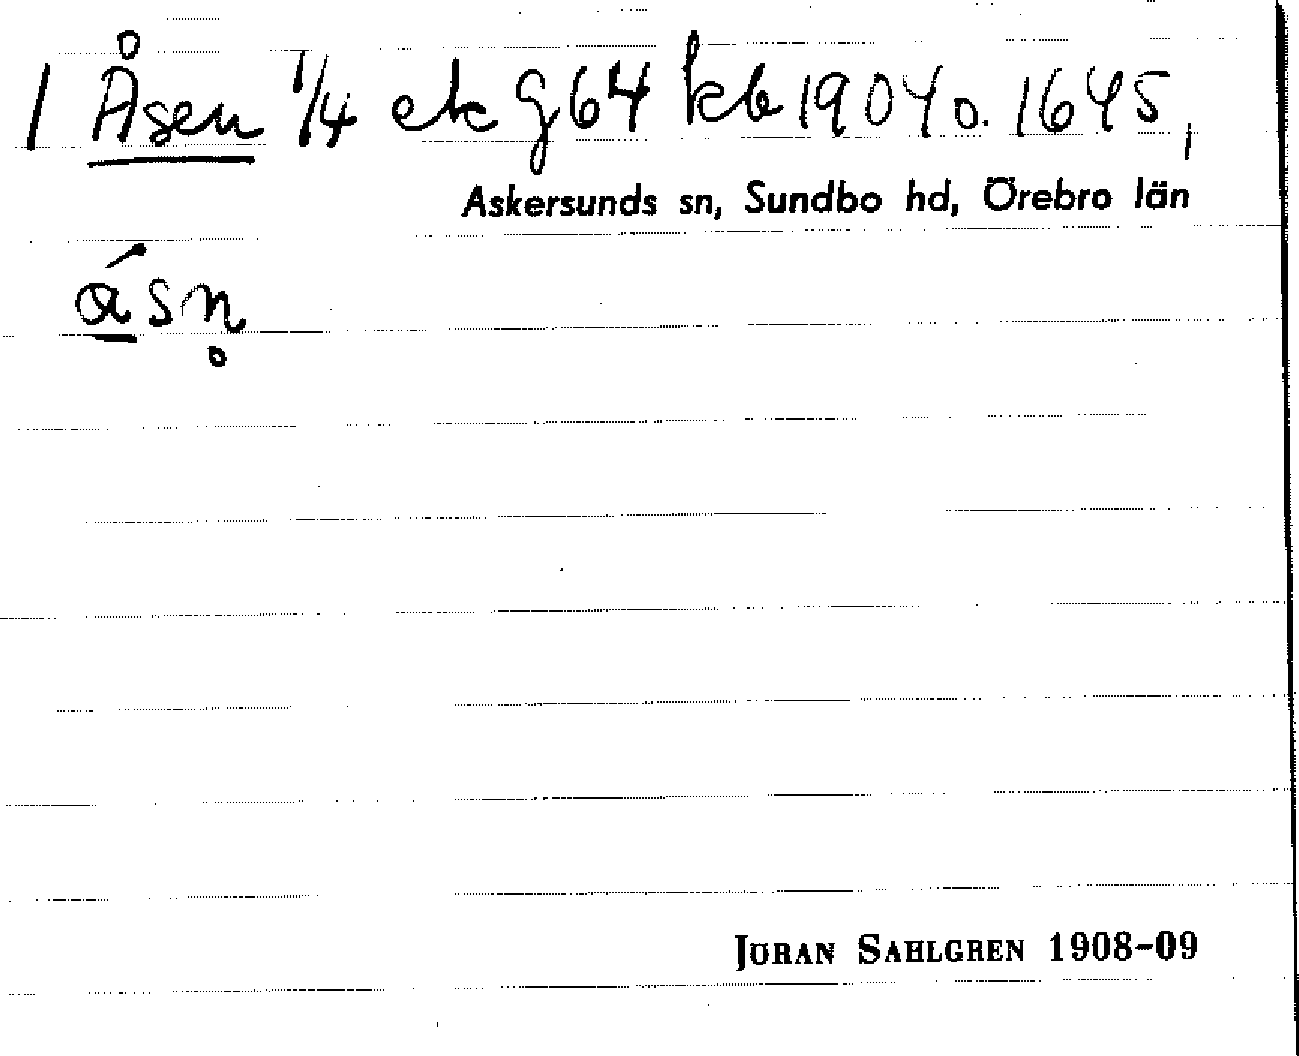 1 Åsen 1/4 ek g 64 kb 1904 o. 1645,
Askersunds sn, Sundbo hd, Örebro län
ásn̥
JÖRAN SAHLGREN 1908-09